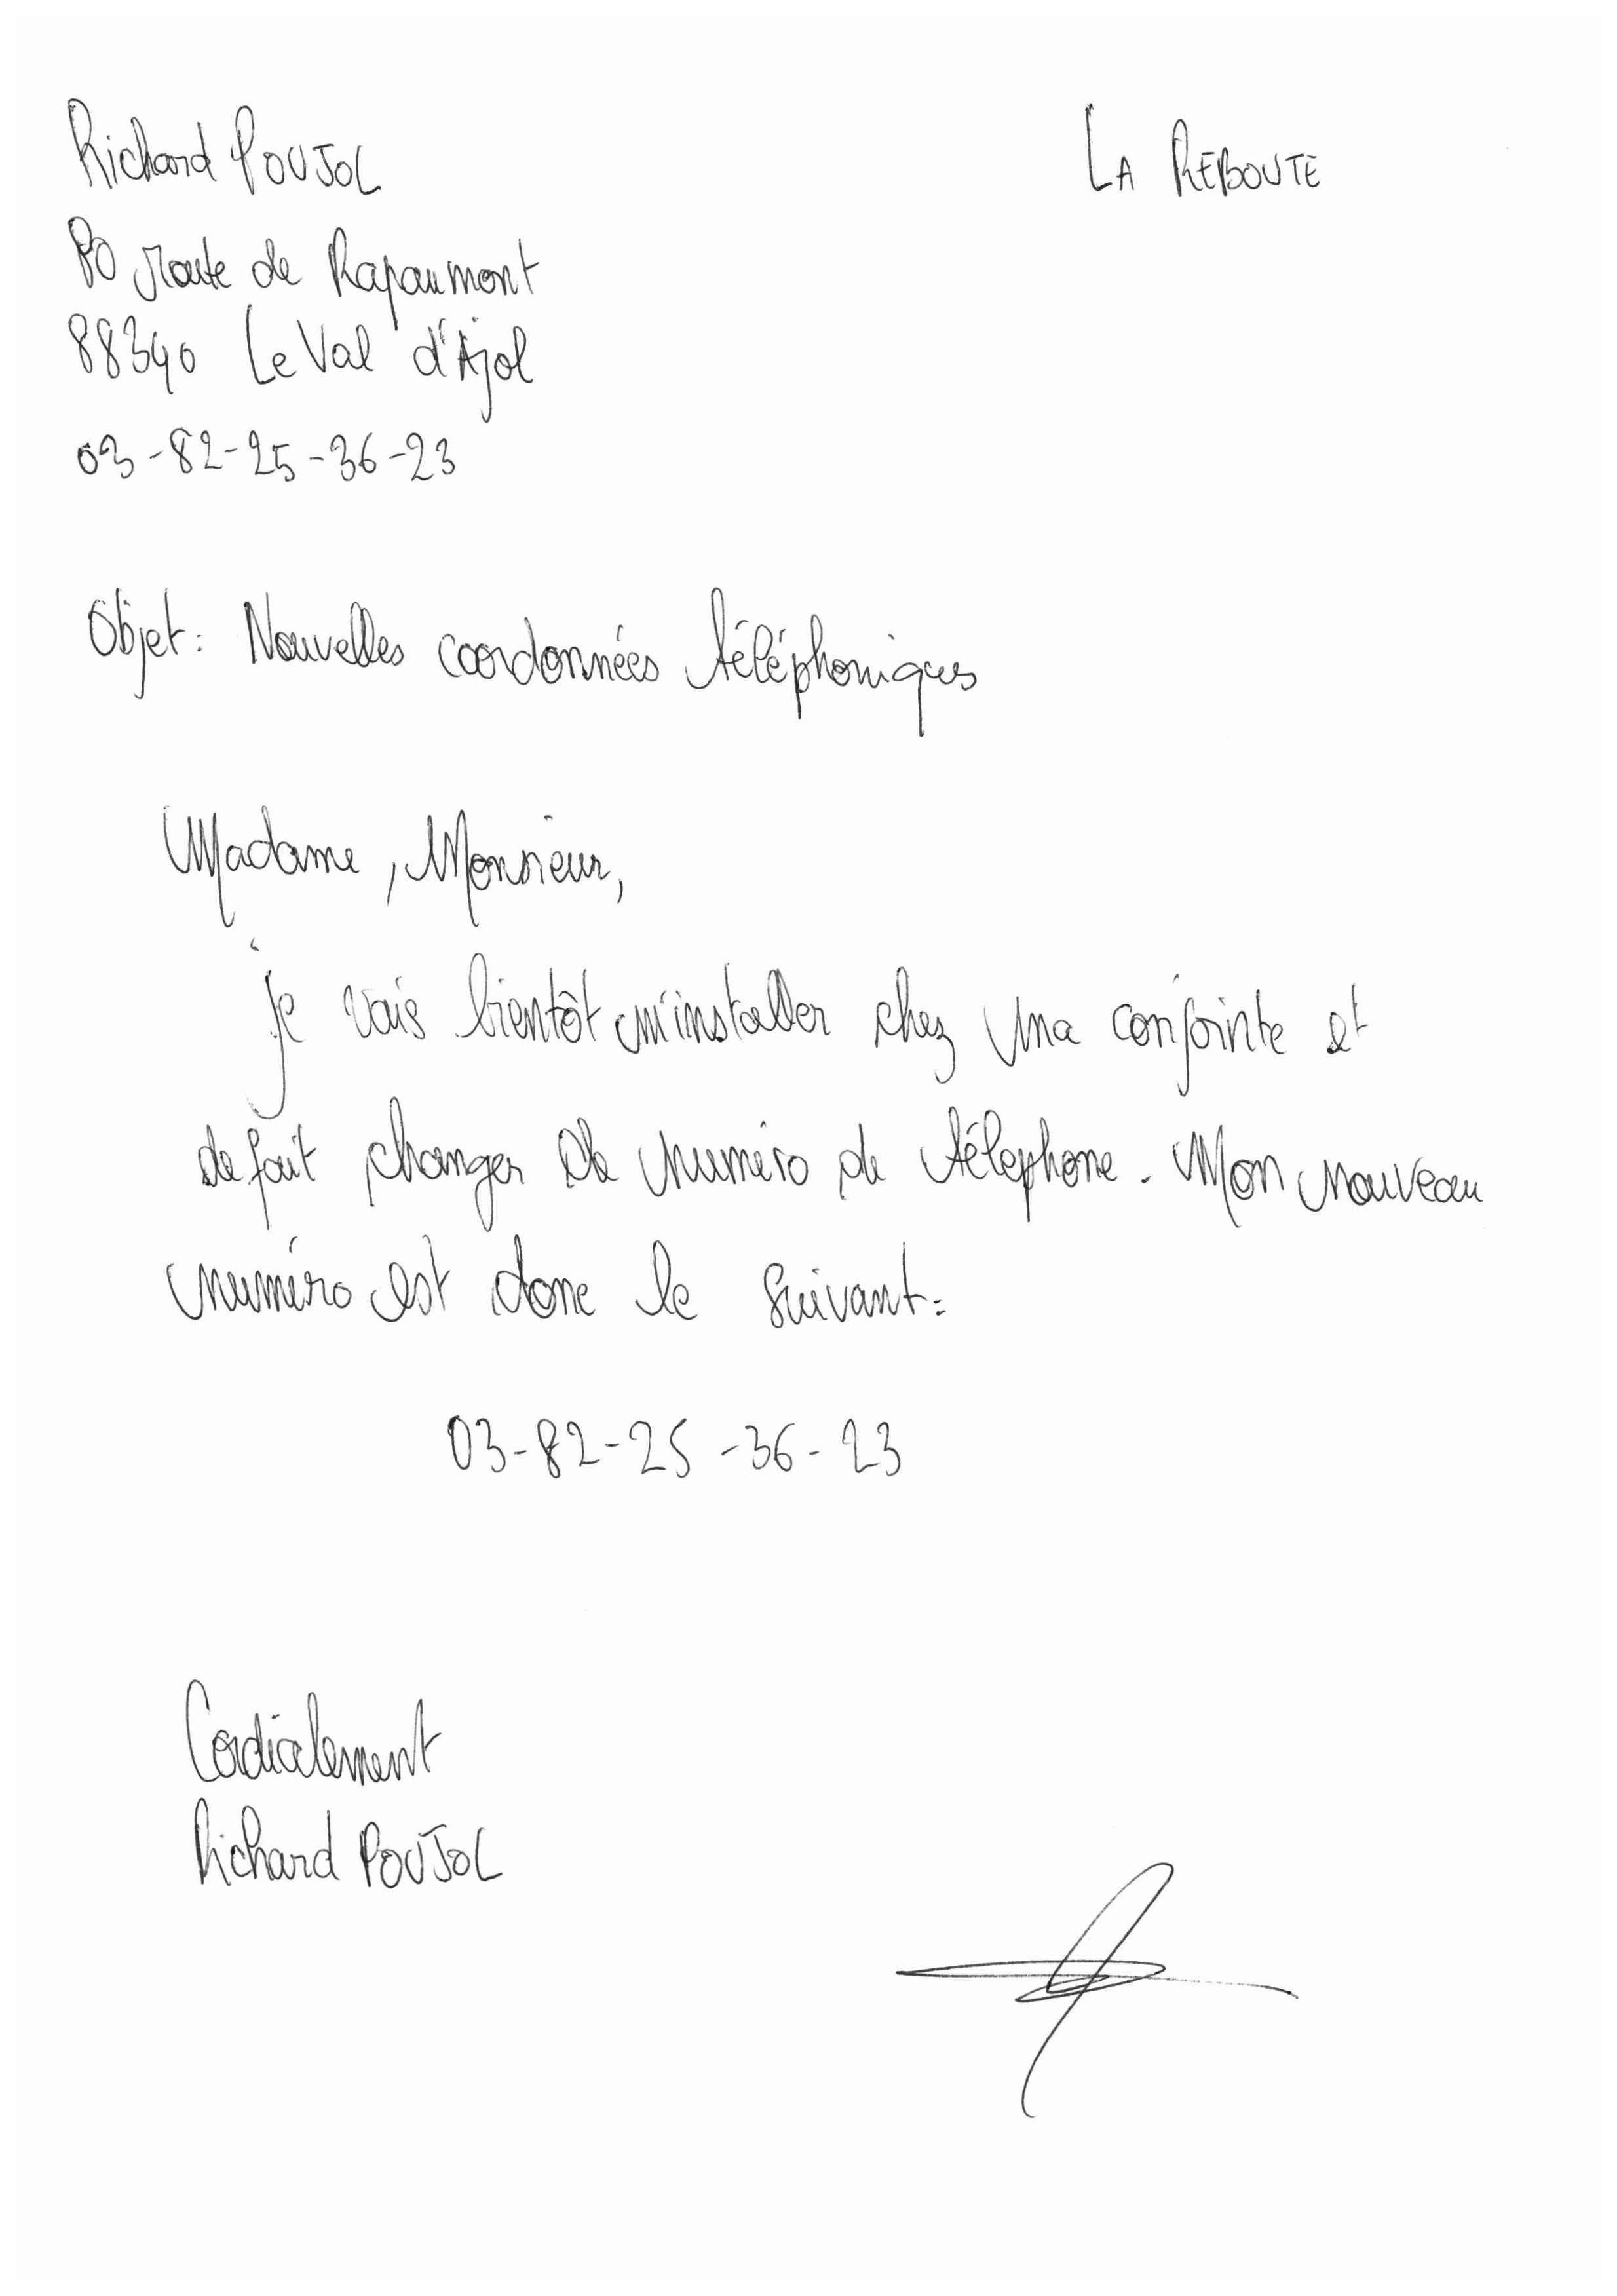 Richard POUJOL
LA REBOUTE
80 route de Rapaumont
88340 Le Val d'Ajol
03-82-25-36-23
Objet: Nouvelles coordonnées téléphoniques
Madame, Monsieur,
je vais bientôt m'installer chez ma conjointe et
de fait changer de numéro de télephone. Mon nouveau
numéro est donc le suivant:
03-82-25-36-23
Cordialement
Richard POUJOL